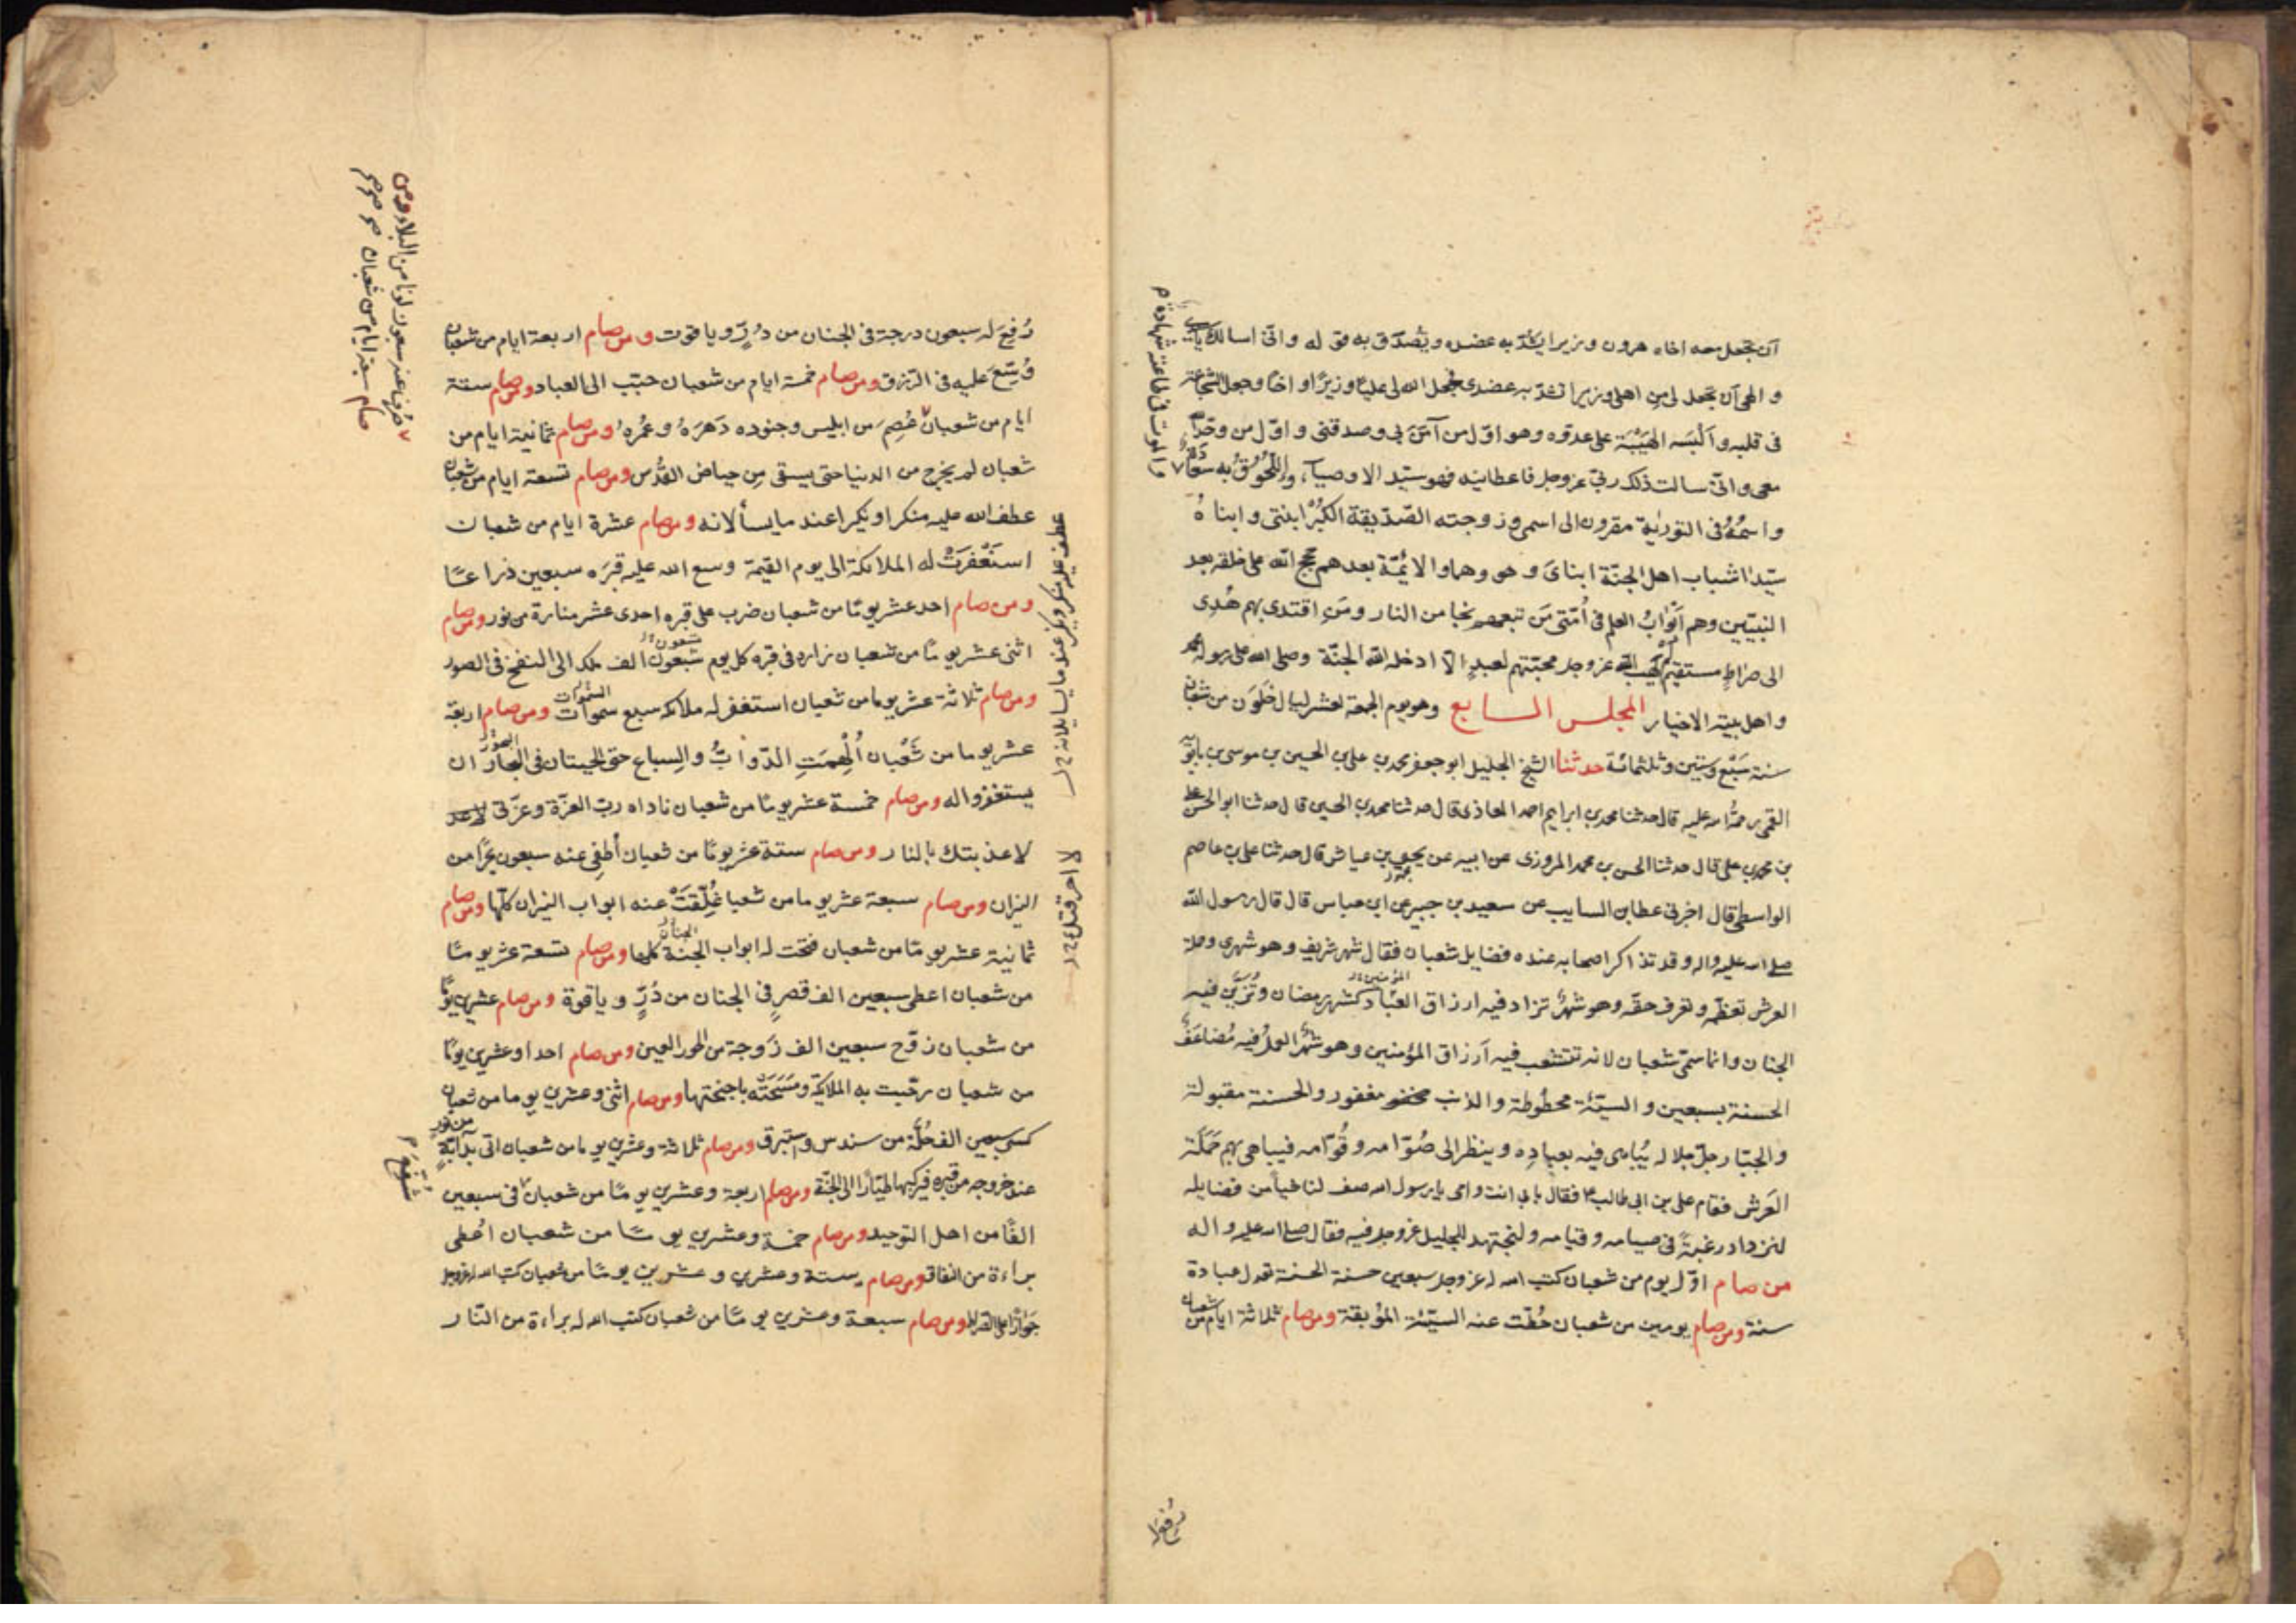 ان تجعل معه اخاه هرون وزيرا يشدّ به عضده ويصدّق به قوله وانّى اسالك يا سيدى
والهى آن تجعل لى من اهلى وزيرا تشدّ به عضدى فجعل الله لى عليّا وزيرًا واخًا وجعل الشجاعة
فى قلبه وآلبسه الهَيْبَة على عدوّه وهو اوّل من آمَنَ بى وصدقنى واوّل من وحّد الله
معى وانّى سالت ذلك ربّى عزوجل فاعطانيه فهو سيّد الاوصيآء واللّحُوقُ به سعَادَة
والموت فى طاعته شهادة م
واسمُهُ فى التورية مقرون الى اسمى وزوجته الصّدّيقة الكبرٰى ابنتى وابناهُ
سيّدا شباب اهل الجنّة ابناىَ وهو وهما والائمّة بعدهم حجج الله على خلقه بعد
النبيّين وهم اَبْوابُ العلم فى اُمّتى مَن تبعهم نجا من النار ومَن اقتدى بهم هُدِىَ
الى صراطٍ مستقيم لم يهب الله عزوجل محبّتهم لعبدٍ الّا ادخله الله الجنّة وصلى الله على رسوله محمد
واهل بيته الاخيار المجلس السابع وهو يوم الجمعة لعشر ليال خَلَوَن من شعبان
سنة سَبْع وستين وثلثمائة حدثنا الشيخ الجليل ابو جعفر محمد بن على بن الحسين بن موسى بن بابَوَيْه
القمى رحمةُ الله عليه قال حدثنا محمد بن ابراهيم احمد المعاذى قال حدثنا محمد بن الحسين قال حدثنا ابو الحسن على
بن محمد بن على قال حدثنا الحسن بن محمد المروزى عن ابيه عن يحيى بن عياش قال حدثنا على بن عاصم
الواسطى قال اخبرنى عطا بن السايب عن سعيد بن جبير عن ابن عباس قال قال رسول الله
صلى الله عليه واله وقد تذاكر اصحابه عنده فضايل شعبان فقال شهر شريف وهو شهرى وحملة
العرش تعظّمه وتعرف حقّه وهو شهرٌ تزاد فيه ارزاق العبّاد المؤمنين كشهر رمضان وتُزَيَّن فيه
الجنان وانما سمّى شعبان لانه تتشعب فيه آرزاق المؤمنين وهو شهرٌ العمل فيه مُضاعَفٌ
الحسنة بسبعين والسيّئة محطوطة والذنب مغفور والحسنة مقبولة
والجبّار جلّ جلاله يُباهى فيه بعبادِه وينظر الى صُوّامه وقُوّامه فيباهى بهم حَمَلَة
العَرش فقام على بن ابى طالب ع فقال بابى انت وامى يا رسول الله صف لنا شيأ من فضايله
لنزداد رغبةً فى صيامه وقيامه ولنجتهد للجليل عزوجل فيه فقال صلى الله عليه واله
من صام اوّل يوم من شعبان كتب الله له عزوجل سبعين حسنة الحسنة تعدل عبادة
سنة ومن صام يومين من شعبان حُطّت عنه السيّئة الموُبقة ومن صام ثلاثة ايام من شعبان
رُفع له
رُفِعَ له سبعون درجة فى الجنان من دُرٍّ وياقوت ومن صام اربعة ايام من شعبان
وُسِّعَ عليه فى الرّزق ومن صام خمسة ايام من شعبان حبّب الى العباد ومن صام ستة
ايام من شعبان
صُرِف عنه سبعون لونا من البلاء ومن
صام سبعة ايام من شعبان صح صح صح
عُصِمَ من ابليس وجنوده دَهرَهُ وعُمُرهُ ومن صام ثمانية ايام من
شعبان لم يخرج من الدنيا حتى يسقى مِن حياض القُدُس ومن صام تسعة ايام من شعبان
عطف الله عليه منكرا ونكيرا عند ما يسألانه ومن صام عشرة ايام من شعبان
عطف عليه منكر ونكير عند ما يسايلانه خ ل
استَغْفَرَتْ له الملائكة الى يوم القيمة وسع الله عليه قبرَه سبعين ذراعًا
ومن صام احد عشر يومًا من شعبان ضرب على قبره احدى عشر منارة من نور ومن صام
اثنى عشر يومًا من شعبان زاره فى قبره كل يوم سبعون تسعون الف ملك الى النفخ فى الصور
ومن صام ثلاثة عشر يوما من شعبان استغفر له ملائكة سبع سموات السموات ومن صام اربعة
عشر يوما من شَعْبان اُلْهِمَتِ الدّوابُّ والسباع حتى الحيتان فى البحار البحور ان
يستغفروا له ومن صام خمسة عشر يومًا من شعبان ناداه ربّ العزّة وعزّتى
لا احرقتك خ ل
لاعذبتك بالنار ومن صام ستة عشر يومًا من شعبان اُطفِى عنه سبعون بحرًا من
النيران ومن صام سبعة عشر يوما من شعبا غُلِّقَتْ عنه ابواب النيران كلّها ومن صام
ثمانية عشر يومًا من شعبان فتحت له ابواب الجنة الجنان كلها ومن صام تسعة عشر يومًا
من شعبان اعطى سبعين الف قصرٍ فى الجنان من دُرٍّ وياقوة ومن صام عشرين يومًا
من شعبان زوّج سبعين الف زوجة من الحور العين ومن صام احدا وعشرين يومًا
من شعبان رحّبت به الملايكة ومَسَحَتْه باجنحتها ومن صام اثنى وعشرين يوما من شعبان
كسى سبعين الف حُلّة من سندس واستبرق ومن صام ثلاثة وعشرين يوما من شعبان اتى بدآبّةٍ من نورٍ
عند خروجه من قبره فيركبها طيّارًا الى الجنّة ومن صام اربعة وعشرين يومًا من شعبان فى سبعين
شُفِّعَ م
الفًا من اهل التوحيد ومن صام خمسة وعشرين يومًا من شعبان اُعطى
براءة من النفاق ومن صام ستة وعشرين وعشرين يومًا من شعبان كتب الله له عزوجل
جَوازًا على الصّراط ومن صام سبعة وعشرين يومًا من شعبان كتب الله له براءة من النّار